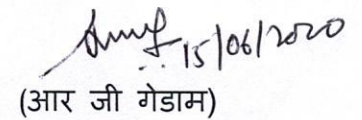 15/06/2020
(आर जी गेडाम)